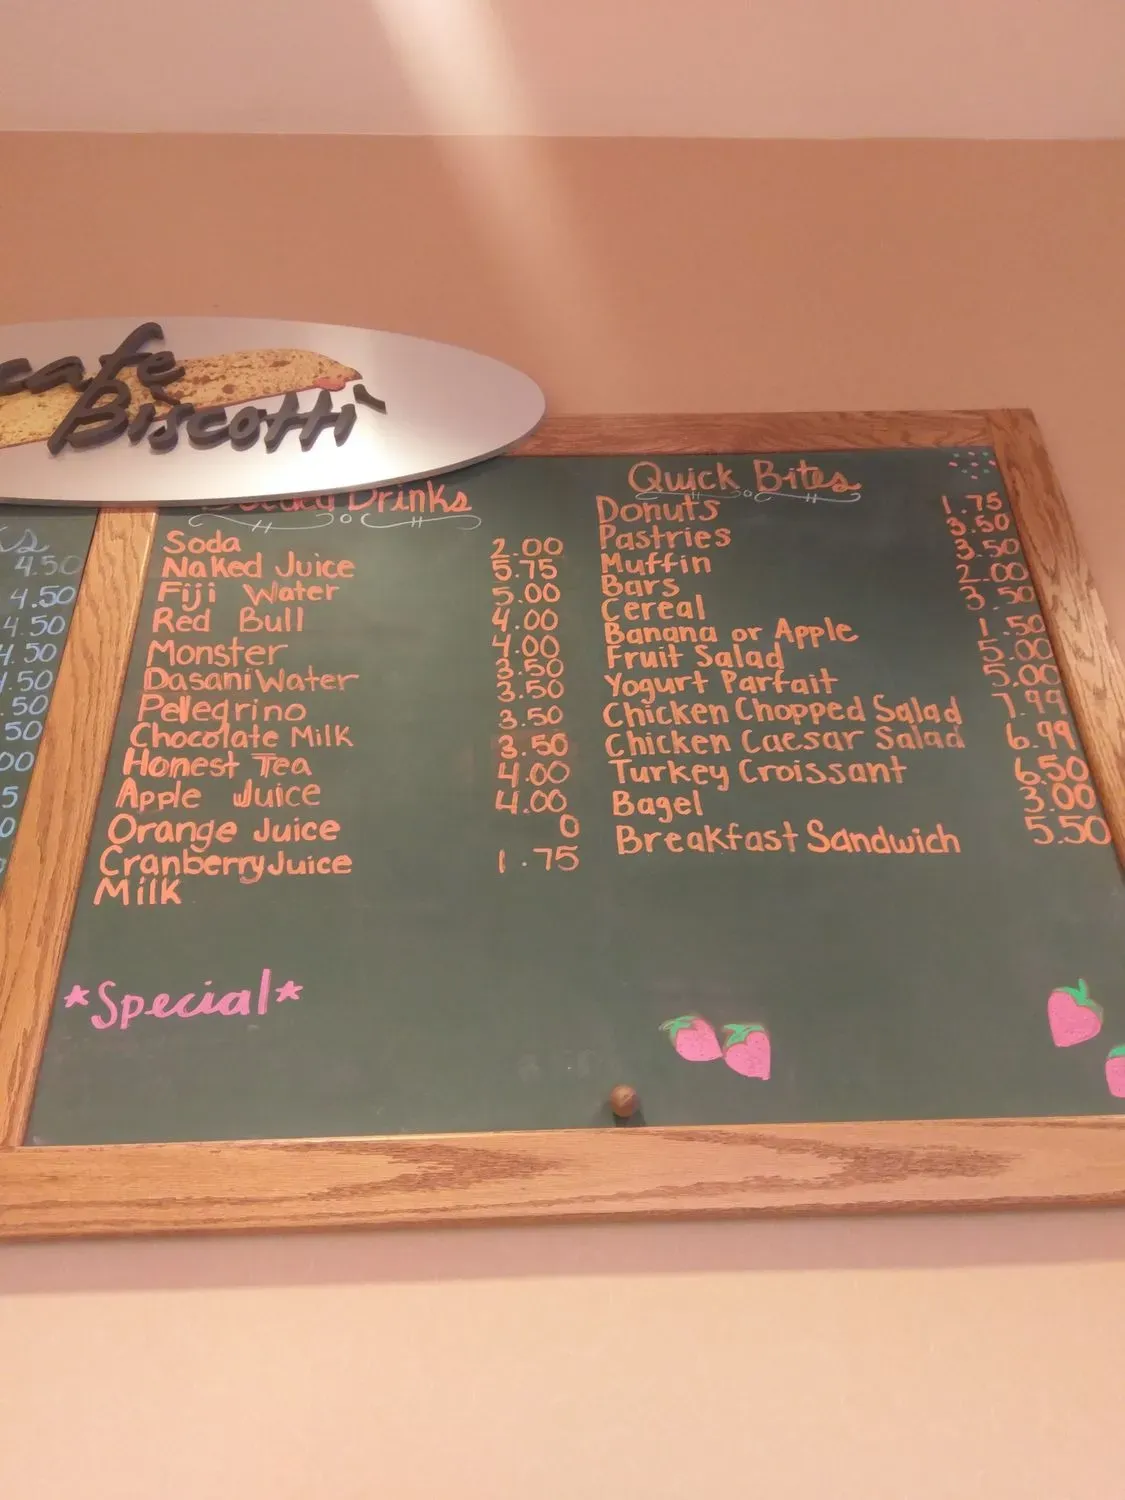 cafe
Biscotti
Drinks
Soda 2.00
Naked Juice 5.75
Fiji Water 5.00
Red Bull 4.00
Monster 4.00
Dasani Water 3.50
Pellegrino 3.50
Chocolate Milk 3.50
Honest Tea 3.50
Apple Juice 4.00
Orange Juice 4.00
Cranberry Juice 0
Milk 1.75
*Special*
Quick Bites
Donuts 1.75
Pastries 3.50
Muffin 3.50
Bars 2.00
Cereal 3.50
Banana or Apple 1.50
Fruit Salad 5.00
Yogurt Parfait 5.00
Chicken Chopped Salad 7.99
Chicken Caesar Salad 6.99
Turkey Croissant 6.50
Bagel 3.00
Breakfast Sandwich 5.50
ks
4.50
4.50
4.50
4.50
4.50
.50
50
00
5
0